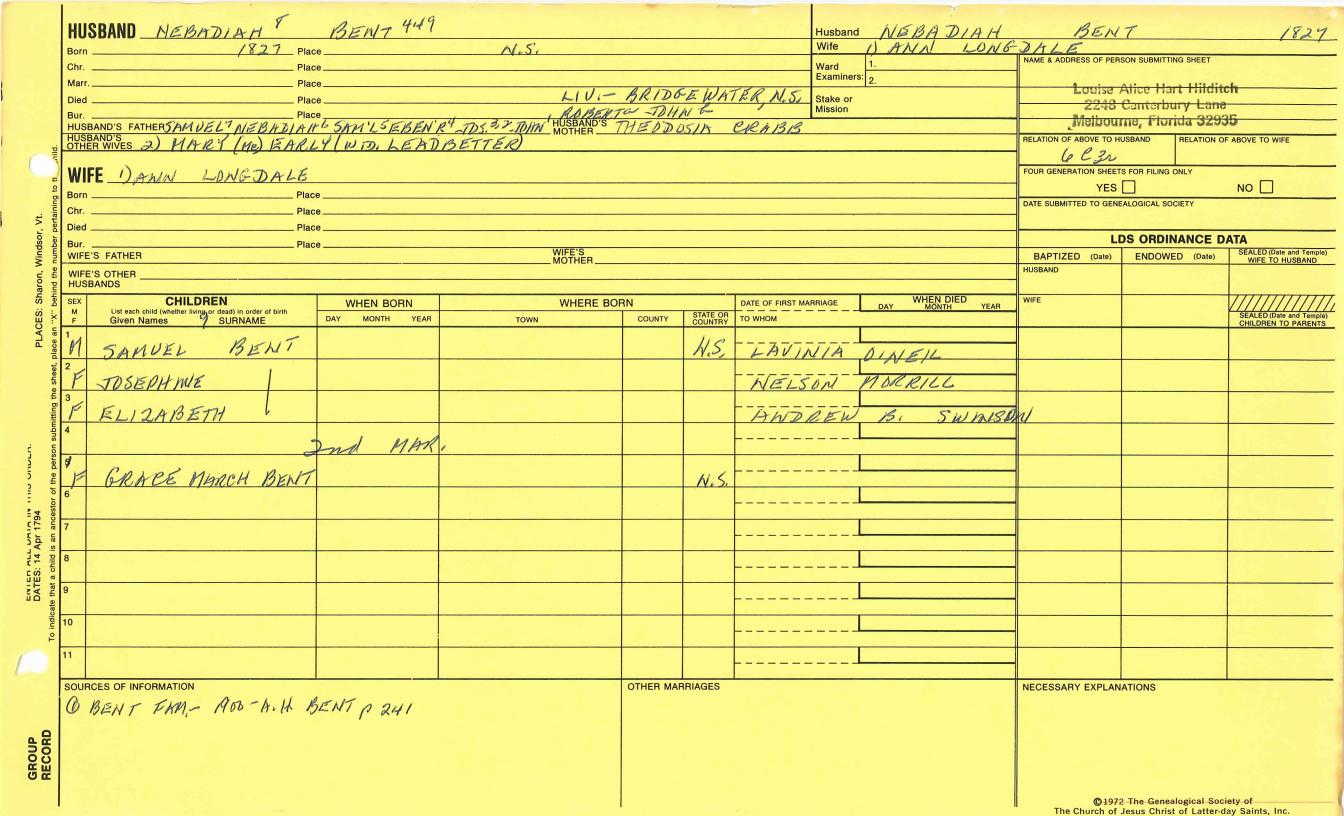 HUSBAND NEBADIAH 8 BENT 449
Born 1827 Place N.S.
Chr. Place
Marr. Place
Died Place LIV.- BRIDGEWATER, N.S.
Bur. Place ROBERT JOHN
HUSBAND'S FATHER SAMUEL 7 NEBADIAH 6 SAM'L 5 EBEN'R 4 JOS. 3,2 JOHN 1 HUSBAND'S MOTHER THEODOSIA CRABB
HUSBAND'S OTHER WIVES 2) MARY (Mc) EARLY (WID. LEADBETTER)
WIFE 1) ANN LONGDALE
Born Place
Chr. Place
Died Place
Bur. Place
WIFE'S FATHER WIFE'S MOTHER
WIFE'S OTHER HUSBANDS
Husband NEBADIAH BENT 1827
Wife 1) ANN LONGDALE
Ward Examiners: 1.
2.
Stake or Mission
NAME & ADDRESS OF PERSON SUBMITTING SHEET
Louise Alice Hart Hilditch
2248 Canterbury Lane
Melbourne, Florida 32935
RELATION OF ABOVE TO HUSBAND RELATION OF ABOVE TO WIFE
6 C 3r
FOUR GENERATION SHEETS FOR FILING ONLY
YES NO
DATE SUBMITTED TO GENEALOGICAL SOCIETY
LDS ORDINANCE DATA
BAPTIZED (Date) ENDOWED (Date) SEALED (Date and Temple) WIFE TO HUSBAND
HUSBAND
WIFE
SEALED (Date and Temple) CHILDREN TO PARENTS
SEX M F
CHILDREN
List each child (whether living or dead) in order of birth
Given Names 9 SURNAME
WHEN BORN
DAY MONTH YEAR
WHERE BORN
TOWN COUNTY STATE OR COUNTRY
DATE OF FIRST MARRIAGE
TO WHOM
WHEN DIED
DAY MONTH YEAR
1 M SAMUEL BENT N.S. LAVINIA O'NEIL
2 F JOSEPHINE NELSON MORRILL
3 F ELIZABETH ANDREW B. SWANSON
4 2nd MAR.
F GRACE MARCH BENT N.S.
6
7
8
9
10
11
SOURCES OF INFORMATION
① BENT FAM.- 1900 - A.H. BENT p 241
OTHER MARRIAGES
NECESSARY EXPLANATIONS
©1972 The Genealogical Society of
The Church of Jesus Christ of Latter-day Saints, Inc.
PLACES: Sharon, Windsor, Vt.
ENTER ALL DATA IN THIS ORDER:
DATES: 14 Apr 1794
To indicate that a child is an ancestor of the person submitting the sheet, place an "X" behind the number pertaining to that child.
GROUP RECORD